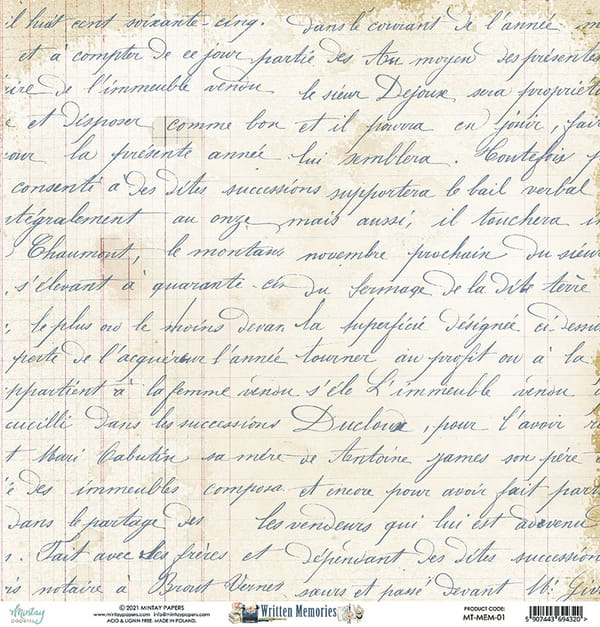 il huit cent soixante-cinq. dans le courant de l'année
et à compter de ce jour partie des Au moyen des présentes
de l'immeuble vendu le sieur Dejoux sera propriét
e et disposer comme bon et il pourra en jouir, fair
our la présente année lui semblera. Toutefois
consenti à des dites successions supportera le bail verbal
ntégralement au onze mais aussi, il touchera
Chaumont, le montant novembre prochain du sieur
s'élevant à quarante-cin du fermage de la dite terre
le plus ou le moins devan la superficie désignée ci-dessu
perte de l'acquéreur l'année tourner au profit ou à la
ppartient à la femme vendu s'éle L'immeuble vendu
cueilli dans les successions Ducloux, pour l'avoir
Mari Cabutin sa mère de Antoine james son père
des immeubles composa et encore pour avoir fait parti
dans le partage des les vendeurs qui lui est advenu
Fait avec les frères et dépendant des dites succession
is notaire à Brout Vernes sœurs et passé devant Me
mintay
papers
©2021 MINTAY PAPERS
www.mintaypapers.com info@mintaypapers.com
ACID & LIGNIN FREE. MADE IN POLAND.
Written Memories
PRODUCT CODE:
MT-MEM-01
5 907443 694320 >